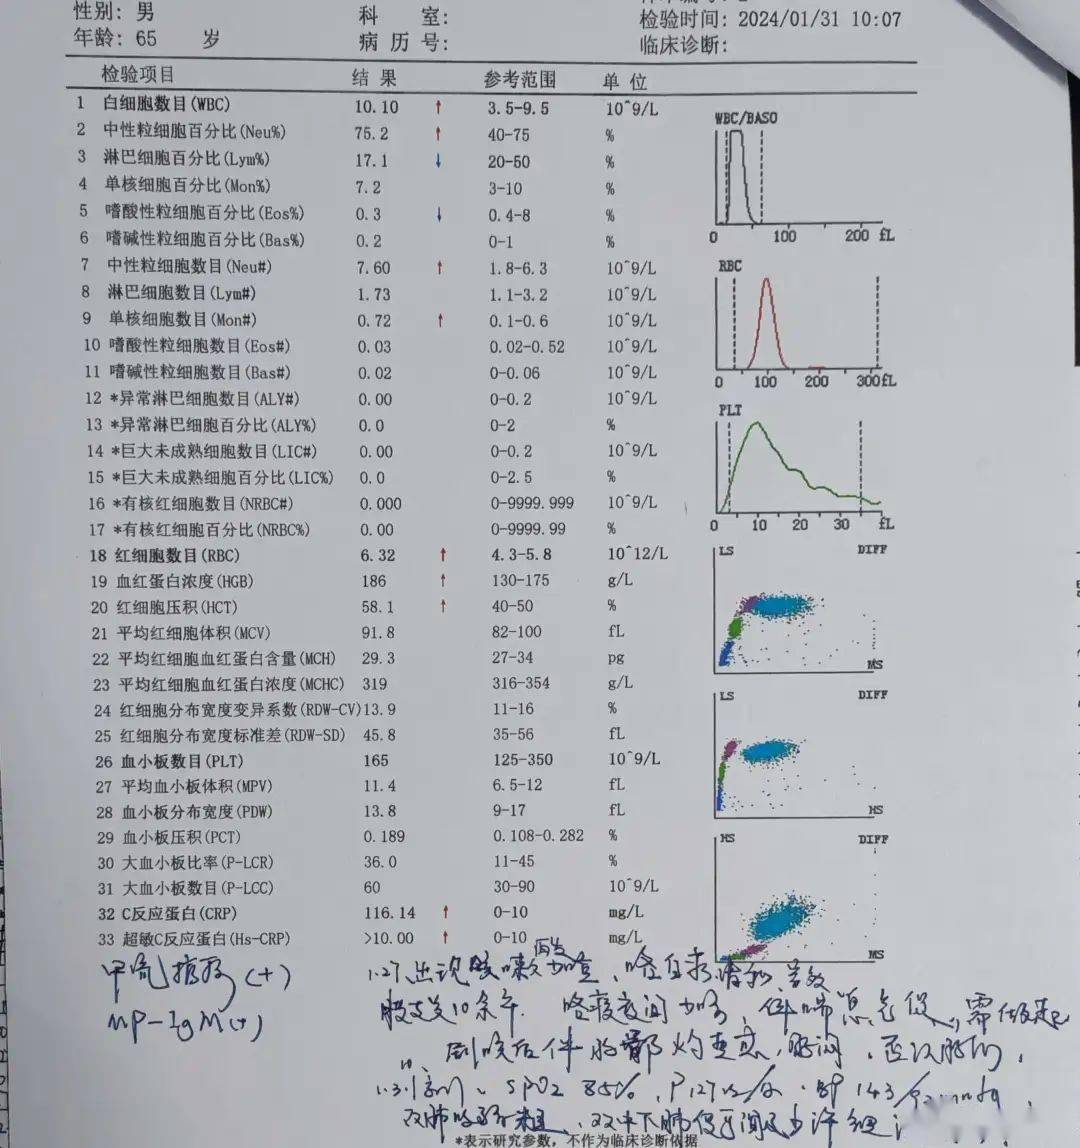 性别: 男 科 室:
检验时间: 2024/01/31 10:07
年龄: 65 岁 病 历 号: 临床诊断:
检验项目 结 果 参考范围 单 位
1 白细胞数目(WBC) 10.10 ↑ 3.5-9.5 10^9/L
2 中性粒细胞百分比(Neu%) 75.2 ↑ 40-75 %
3 淋巴细胞百分比(Lym%) 17.1 ↓ 20-50 %
4 单核细胞百分比(Mon%) 7.2 3-10 %
5 嗜酸性粒细胞百分比(Eos%) 0.3 ↓ 0.4-8 %
6 嗜碱性粒细胞百分比(Bas%) 0.2 0-1 %
7 中性粒细胞数目(Neu#) 7.60 ↑ 1.8-6.3 10^9/L
8 淋巴细胞数目(Lym#) 1.73 1.1-3.2 10^9/L
9 单核细胞数目(Mon#) 0.72 ↑ 0.1-0.6 10^9/L
10 嗜酸性粒细胞数目(Eos#) 0.03 0.02-0.52 10^9/L
11 嗜碱性粒细胞数目(Bas#) 0.02 0-0.06 10^9/L
12 *异常淋巴细胞数目(ALY#) 0.00 0-0.2 10^9/L
13 *异常淋巴细胞百分比(ALY%) 0.0 0-2 %
14 *巨大未成熟细胞数目(LIC#) 0.00 0-0.2 10^9/L
15 *巨大未成熟细胞百分比(LIC%) 0.0 0-2.5 %
16 *有核红细胞数目(NRBC#) 0.000 0-9999.999 10^9/L
17 *有核红细胞百分比(NRBC%) 0.00 0-9999.99 %
18 红细胞数目(RBC) 6.32 ↑ 4.3-5.8 10^12/L
19 血红蛋白浓度(HGB) 186 ↑ 130-175 g/L
20 红细胞压积(HCT) 58.1 ↑ 40-50 %
21 平均红细胞体积(MCV) 91.8 82-100 fL
22 平均红细胞血红蛋白含量(MCH) 29.3 27-34 pg
23 平均红细胞血红蛋白浓度(MCHC) 319 316-354 g/L
24 红细胞分布宽度变异系数(RDW-CV) 13.9 11-16 %
25 红细胞分布宽度标准差(RDW-SD) 45.8 35-56 fL
26 血小板数目(PLT) 165 125-350 10^9/L
27 平均血小板体积(MPV) 11.4 6.5-12 fL
28 血小板分布宽度(PDW) 13.8 9-17 fL
29 血小板压积(PCT) 0.189 0.108-0.282 %
30 大血小板比率(P-LCR) 36.0 11-45 %
31 大血小板数目(P-LCC) 60 30-90 10^9/L
32 C反应蛋白(CRP) 116.14 ↑ 0-10 mg/L
33 超敏C反应蛋白(Hs-CRP) >10.00 ↑ 0-10 mg/L
WBC/BASO
0 100 200 fL
RBC
0 100 200 300fL
PLT
0 10 20 30 fL
LS DIFF
MS
LS DIFF
HS
HS DIFF
MS
甲流抗原(+)
MP-IgM(+)
1.27出现咳嗽
10余年 夜间 伴喘息气促
后伴胸 灼 胸闷
1.31 SPO2 85%, P127次/分 BP 143/92mmHg
双肺呼吸音粗, 双中下肺 少许细
*表示研究参数, 不作为临床诊断依据